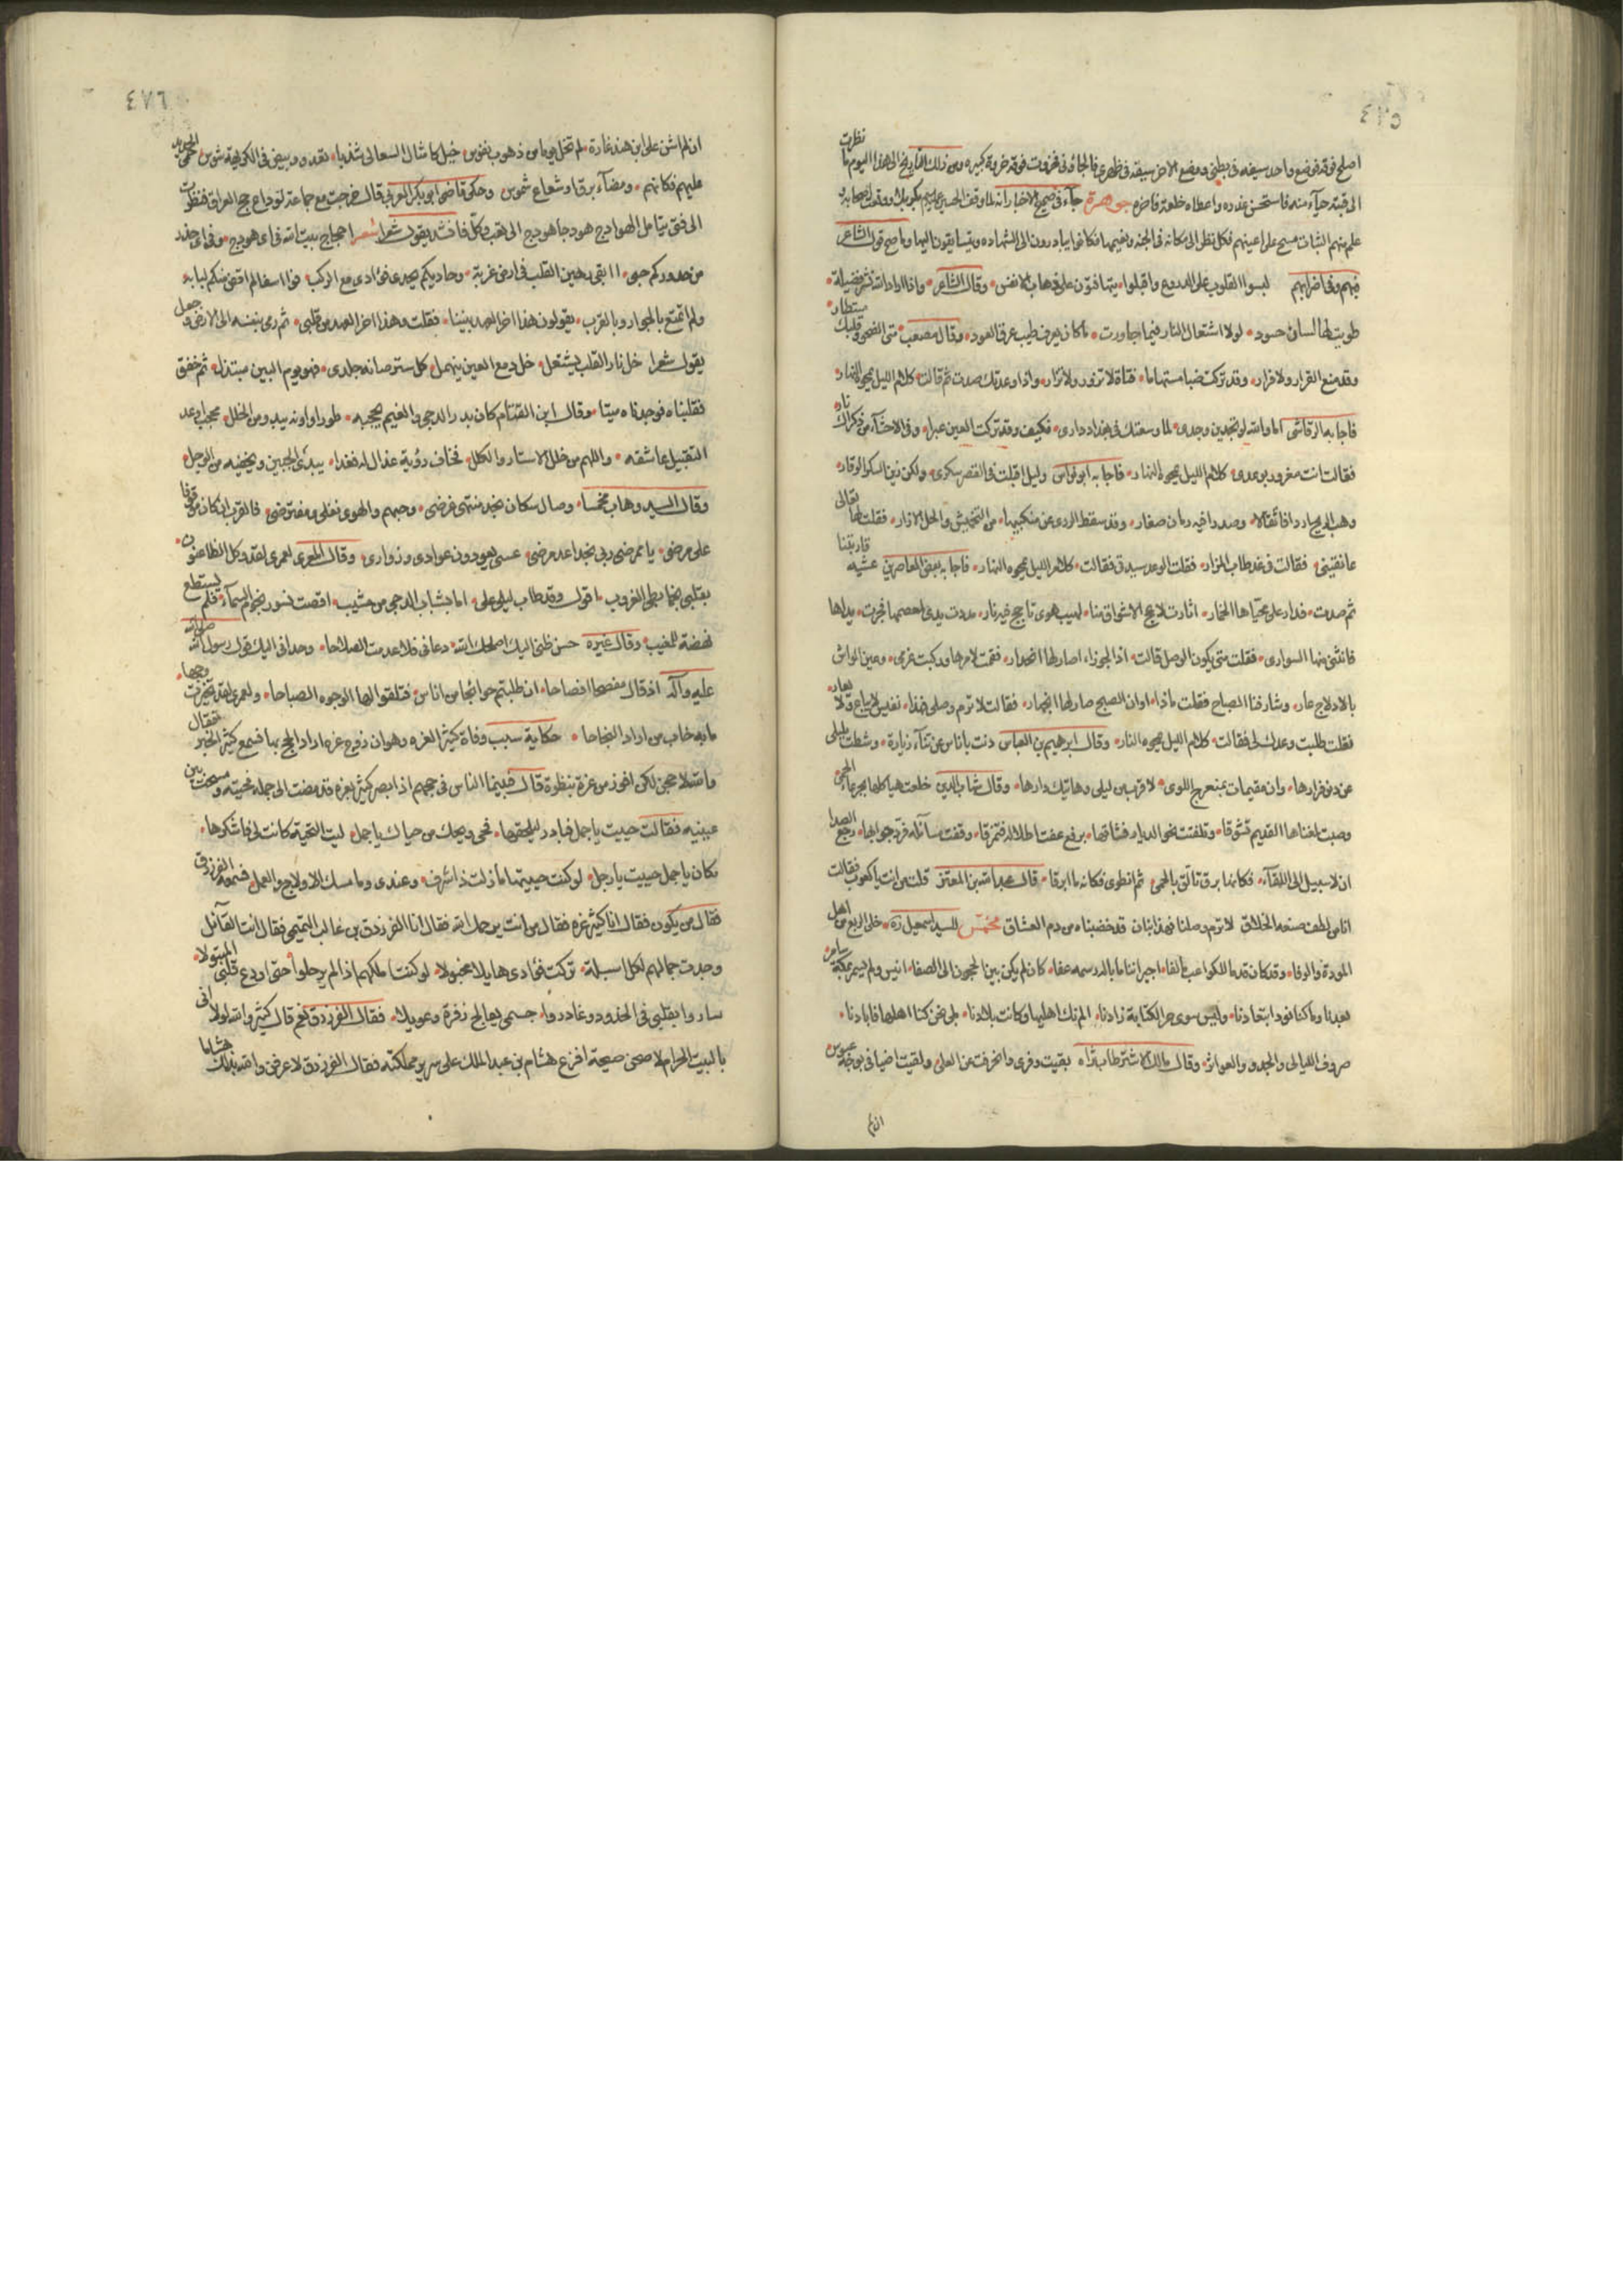 ٤٧٥
نظرت
الى قبته حيآء منه فاستحسن عذره واعطاه خلعة فاخره جوهرة جآء فى صحيح الاخبار انه لما وقف الحسين عليه السلم بكربلا
علم منهم الثبات مسح على اعينهم فكل نظر الى مكانه فى الجنه ونعيمها فكانوا يبادرون الى الشهاده ويتسابقون اليها وما اصح قول الشاعر
فيهم وفى اضرابهم لبسوا القلوب على الدروع واقبلوا يتهافتون على ذهاب الانفس وقال الشاعر واذا اراد الله نشر فضيلة
طويت لها لسان حسود لولا اشتعال النار فيما جاورت ما كان يعرف طيب عرف العود وقال مصعب متى تصحو وقلبك مستطار
وقد منع القرار ولا قرار وقد تركت صبا مستهاما فتاة لا تزور ولا تزار واذا وعدتك صدت ثم قالت كلام الليل يمحوه النهار
فاجابه الرقاشى اما والله لو تجدين وجدى لما وسعتك فى بغداد دارى فكيف وقد تركت العين عبرا وفى الاحشآء من ذكراك نار
فقالت انت مغرور بوعدى كلام الليل يمحوه النهار فاجابه ابو نواس وليل اقبلت فى القصر سكرى ولكن زين السكر الوقار
وهب الريح اردافا ثقالا وصدرا فيه رمان صغار وقد سقط الردى عن منكبيها من التجميش وانحل الازار فقلت لها تعالى
عانقينى فقالت فى غد طاب المزار فقلت الوعد سيدتى فقالت كلام الليل يمحوه النهار فاجابه بعض المعاصرين عشيه
ثم صدت فدار على محياها الخمار اثارت لاعج الاشواق منا لهيب هوى تاجج فيه نار مددت يدى لعصمها فجرت يداها
فانثنى منها السوارى فقلت متى يكون الوصل قالت اذا الجوزاء صار لها انحدار فقمت لامرها وركبت عزمى وعين الواش
بالادلاج عار وشارفنا الصباح فقلت ماذا اوان الصبح صار لها انجهار فقالت لا ترم وصلى فهذا نفيس لا يباع ولا يعار
فقلت طلبت وعدك لى فقالت كلام الليل يمحوه النهار وقال ابرهيم بن العباس دنت باناس عن تنآء زيارة وشطت بليلى
عن دنو مزارها وان مقيمات بمنعرج اللوى لاقرب من ليلى وهاتيك دارها وقال شهاب الدين خلعت هياكلها بجرعاء الحمى
وصبت لمغناها القديم تشوقا وتلفتت نحو الديار فشاقها ربع عفت اطلاله فتمزقا وقفت سآئله فرد جوابها رجع الصدا
ان لا سبيل الى اللقآء فكانما برق تالق بالحمى ثم انطوى فكانه ما ابرقا قال عبد الله بن المعتز قلت من انت يا كعوب فقالت
انا من لطف صنعه الخلاق لا ترم وصلنا فهذا بنان قد خضبناه من دم العشاق مخمس للسيد اسمعيل ره خلى الربع من اهل
المودة والوفا وقد كان قدما للكواعب مألفا اجيراننا ما بال رسمه عفا كان لم يكن بين الحجون الى الصفا انيس ولم يسمر بمكة سامر
بعدنا وما كنا نود ابتعادنا وليس سوى حر الكآبة زادنا الم نك اهليها وكانت بلادنا بلى نحن كنا اهلها فابادنا
صروف الليالى والجدود العواثر وقال مالك الاشتر طاب ثراه بقيت وفرى وانحرفت عن العلى ولقيت اضيافى بوجه عبوس
ان لم
٤٧٦
ان لم اشن على ابن هند غارة لم تخل يوما من ذهوب نفوس خيل كامثال السعالى شذبا تعدو ببيض فى الكريهة شوس حمى الحديد
عليهم فكانهم ومضآء برق او شعاع شموس وحكى قاضى ابو بكر العربى قال خرجت مع جماعة لوداع حج العراق فنظرت
الى فتى يتامل الهوادج هودجا هودجا الى تعب وكل فانشد يقول شعرا شعر احجاج بيت الله فى اى هودج وفى اى خدر
من خدوركم حبى اابقى رهين القلب فى ارض غربة وحاديكم يحدى فؤادى مع الركب فوا اسفا لم اقض منكم لبابة
ولم اتمتع بالجوار وبالقرب يقولون هذا اخر العهد بيننا فقلت وهذا اخر العهد من قلبى ثم رمى بنفسه الى الارض وجعل
يقول شعرا خل نار القلب يشتعل خل دمع العين ينهمل كل ستر صانه جلدى فهو يوم البين مبتذل ثم خفق
فقلبناه فوجدناه ميتا وقال ابن القتام كان بدر الدجى والغيم يحجبه طورا واونه يبدو من الخلل محجب اوعد
التقبيل عاشقه واللهم من خلل الاستار والكلل فخاف رؤية عذال له فغدا يبدى الجبين ويخفيه من الوجل
وقال السيد وهاب مخمسا وصال سكان نجد منتهى غرضى وحبهم والهوى نفلى ومفترضى فالقرب ان كان موقوفا
على مرضى يا ممرضى ربى نجد اعد مرضى عسى يعودون عوادى وزوارى وقال المعرى لعمرى لقد وكل الظاعنون
بقلبى نجما بطى الغروب اقول وقد طاب ليلى على اما لشباب الدجى من مشيب اقصت نسور نجوم السمآء فلم يستطع
نهضة للمغيب وقال غيره حسن ظنى اليك اصلحك الله دعانى فلا عدمت الصلاحا وحدانى اليك قول رسول الله صلى الله
عليه وآله اذ قال مفصحا افصاحا ان طلبتم حوائجا من اناس فتلقوا لها الوجوه الصباحا ولعمرى لقد تخيرت وجها
ما به خاب من اراد النجاحا حكاية سبب وفاة كثير العزه وهو ان زوج عزه اراد الحج بها فسمع كثير الخبر فقال
والله لاحجن لكى افوز من عزة بنظرة قال فبينما الناس فى حجهم اذا بصر كثير بعزه قد مضت الى جمله فحيته ومسحت بين
عينيه فقالت حييت يا جمل فبادر ليلحقها ففى ويحك من حياك يا جمل ليت التحية كانت لى فاشكرها
مكان يا جمل حييت يا رجل لو كنت حييتها ما زلت ذا شرف وعندى وما مسك الادلاج والعمل فسمعه الفرزدق
فقال من يكون فقال انا كثير عزه فقال من انت يرحمك الله فقال انا الفرزدق بن غالب التميمى فقال انت القآئل
وجدت جمالهم لكل اسيلة تركت فؤادى هايلا مخبولا لو كنت املكهم اذا لم يرحلوا حتى اودع قلبى المتبولا
ساروا بقلبى فى الخدود وغادروا جسمى يعالج زفرة وعويلا فقال الفرزدق نعم قال كثير والله لولا انى
بالبيت الحرام لاصحن صيحة افزع هشام بن عبد الملك على سرير مملكته فقال الفرزدق لاعرفن والله بذلك هشاما